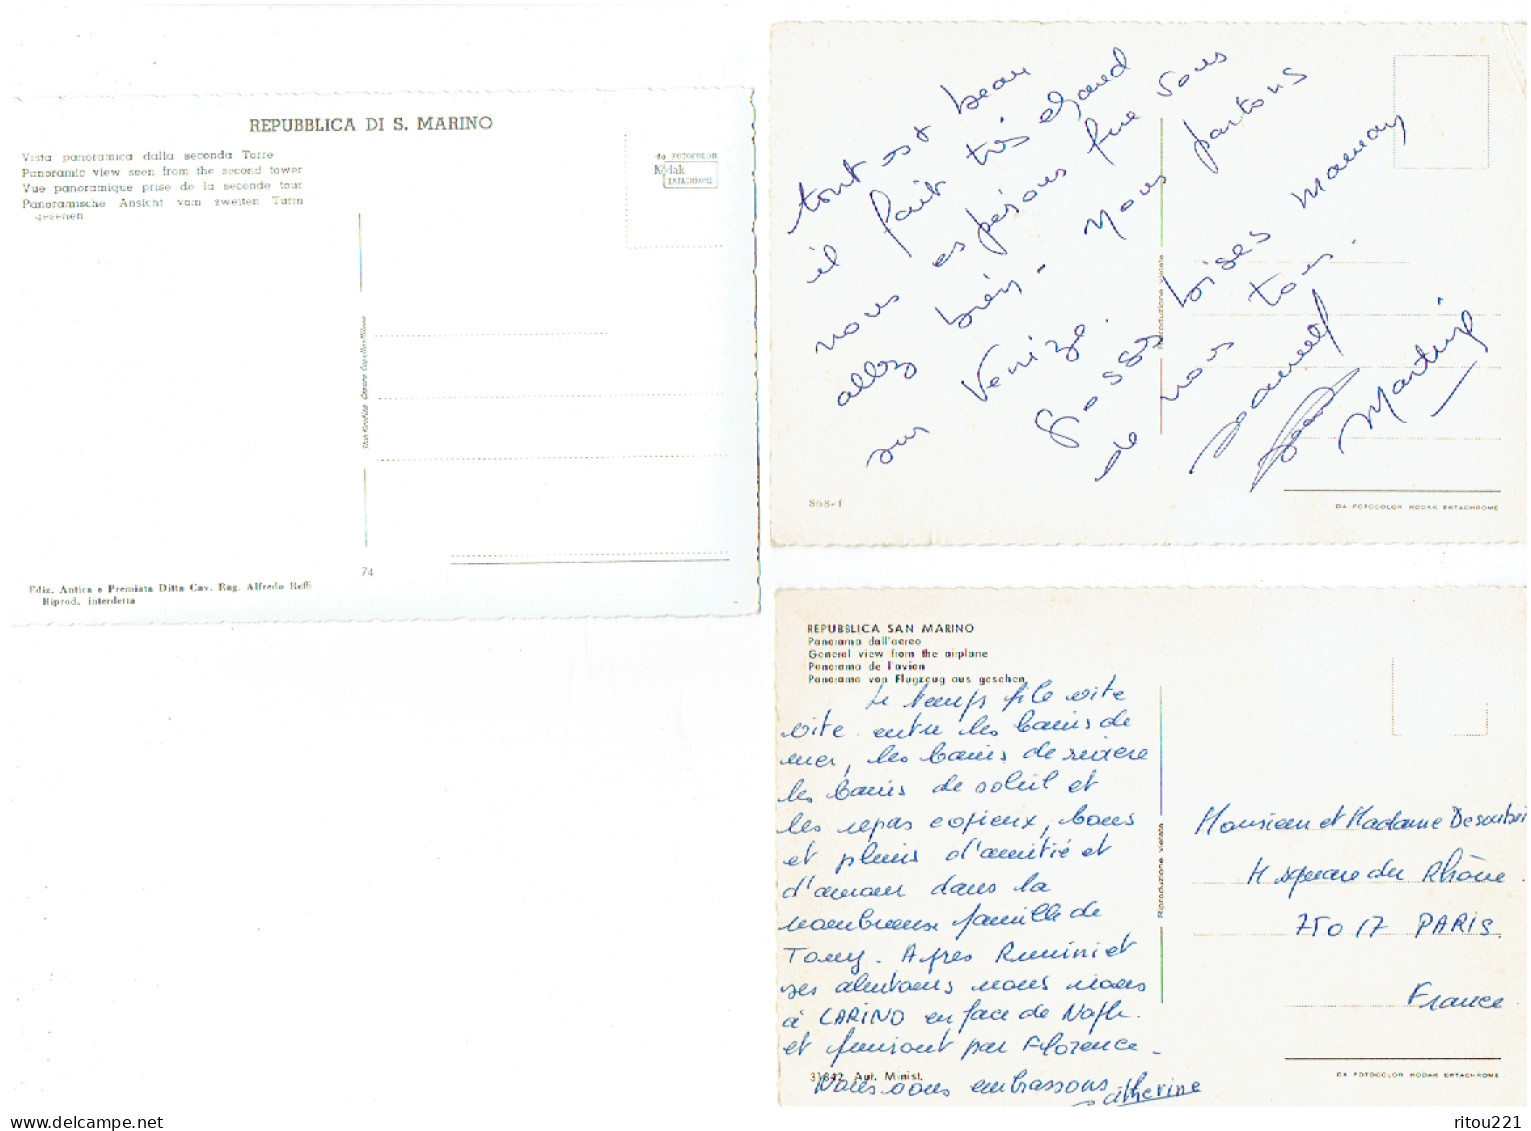 REPUBBLICA DI S. MARINO
Vista panoramica dalla seconda Torre
Panoramic view seen from the second tower
Vue panoramique prise de la seconde tour
Panoramische Ansicht vom zweiten Turm
gesehen
da FOTOCOLOR
Kodak
EKTACHROME
Stab. Grafico Cesare Capello-Milano
74
Ediz. Antica e Premiata Ditta Cav. Rag. Alfredo Reffi
Riprod. interdetta
tout est beau
il fait très chaud
nous espérons que vous
allez bien - nous partons
sur Venize.
Grosses bises maman
de nous tous.
Martine
Riproduzione vietata
868-1
DA FOTOCOLOR KODAK EKTACHROME
REPUBBLICA SAN MARINO
Panorama dall'aereo
General view from the airplane
Panorama de l'avion
Panorama von Flugzeug aus gesehen
Le temps file vite
vite entre les bains de
mer, les bains de rivière
les bains de soleil et
les repas copieux, bons
et pleins d'amitié et
d'amour dans la
nombreuse famille de
Tony. Après Rimini et
ses alentours nous irons
à CARINO en face de Naples
et finiront par Florence.
Nous vous embrassons
Catherine
31842 Aut. Minist.
Riproduzione vietata
Monsieur et Madame
4 square du Rhône.
75017 PARIS
France
DA FOTOCOLOR KODAK EKTACHROME
ritou221